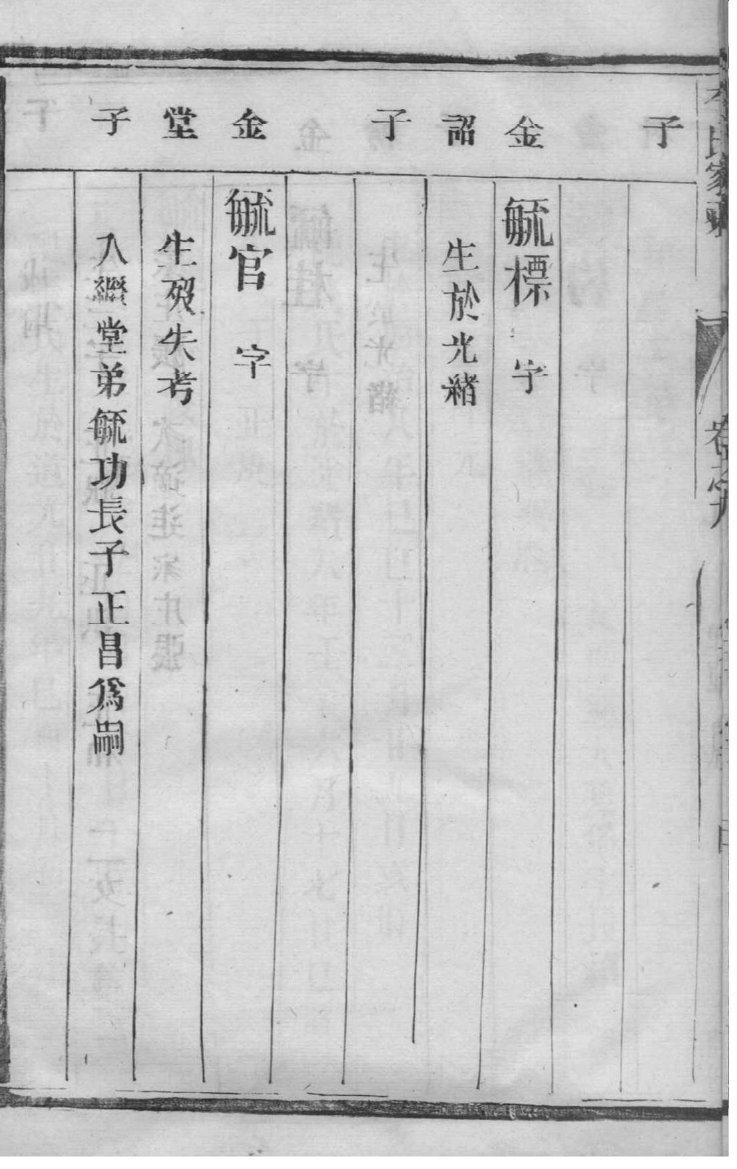 子
金
詔
子
金
堂
子
毓標 字
生於光緒
毓官 字
生歿失考
入繼堂弟毓功長子正昌爲嗣